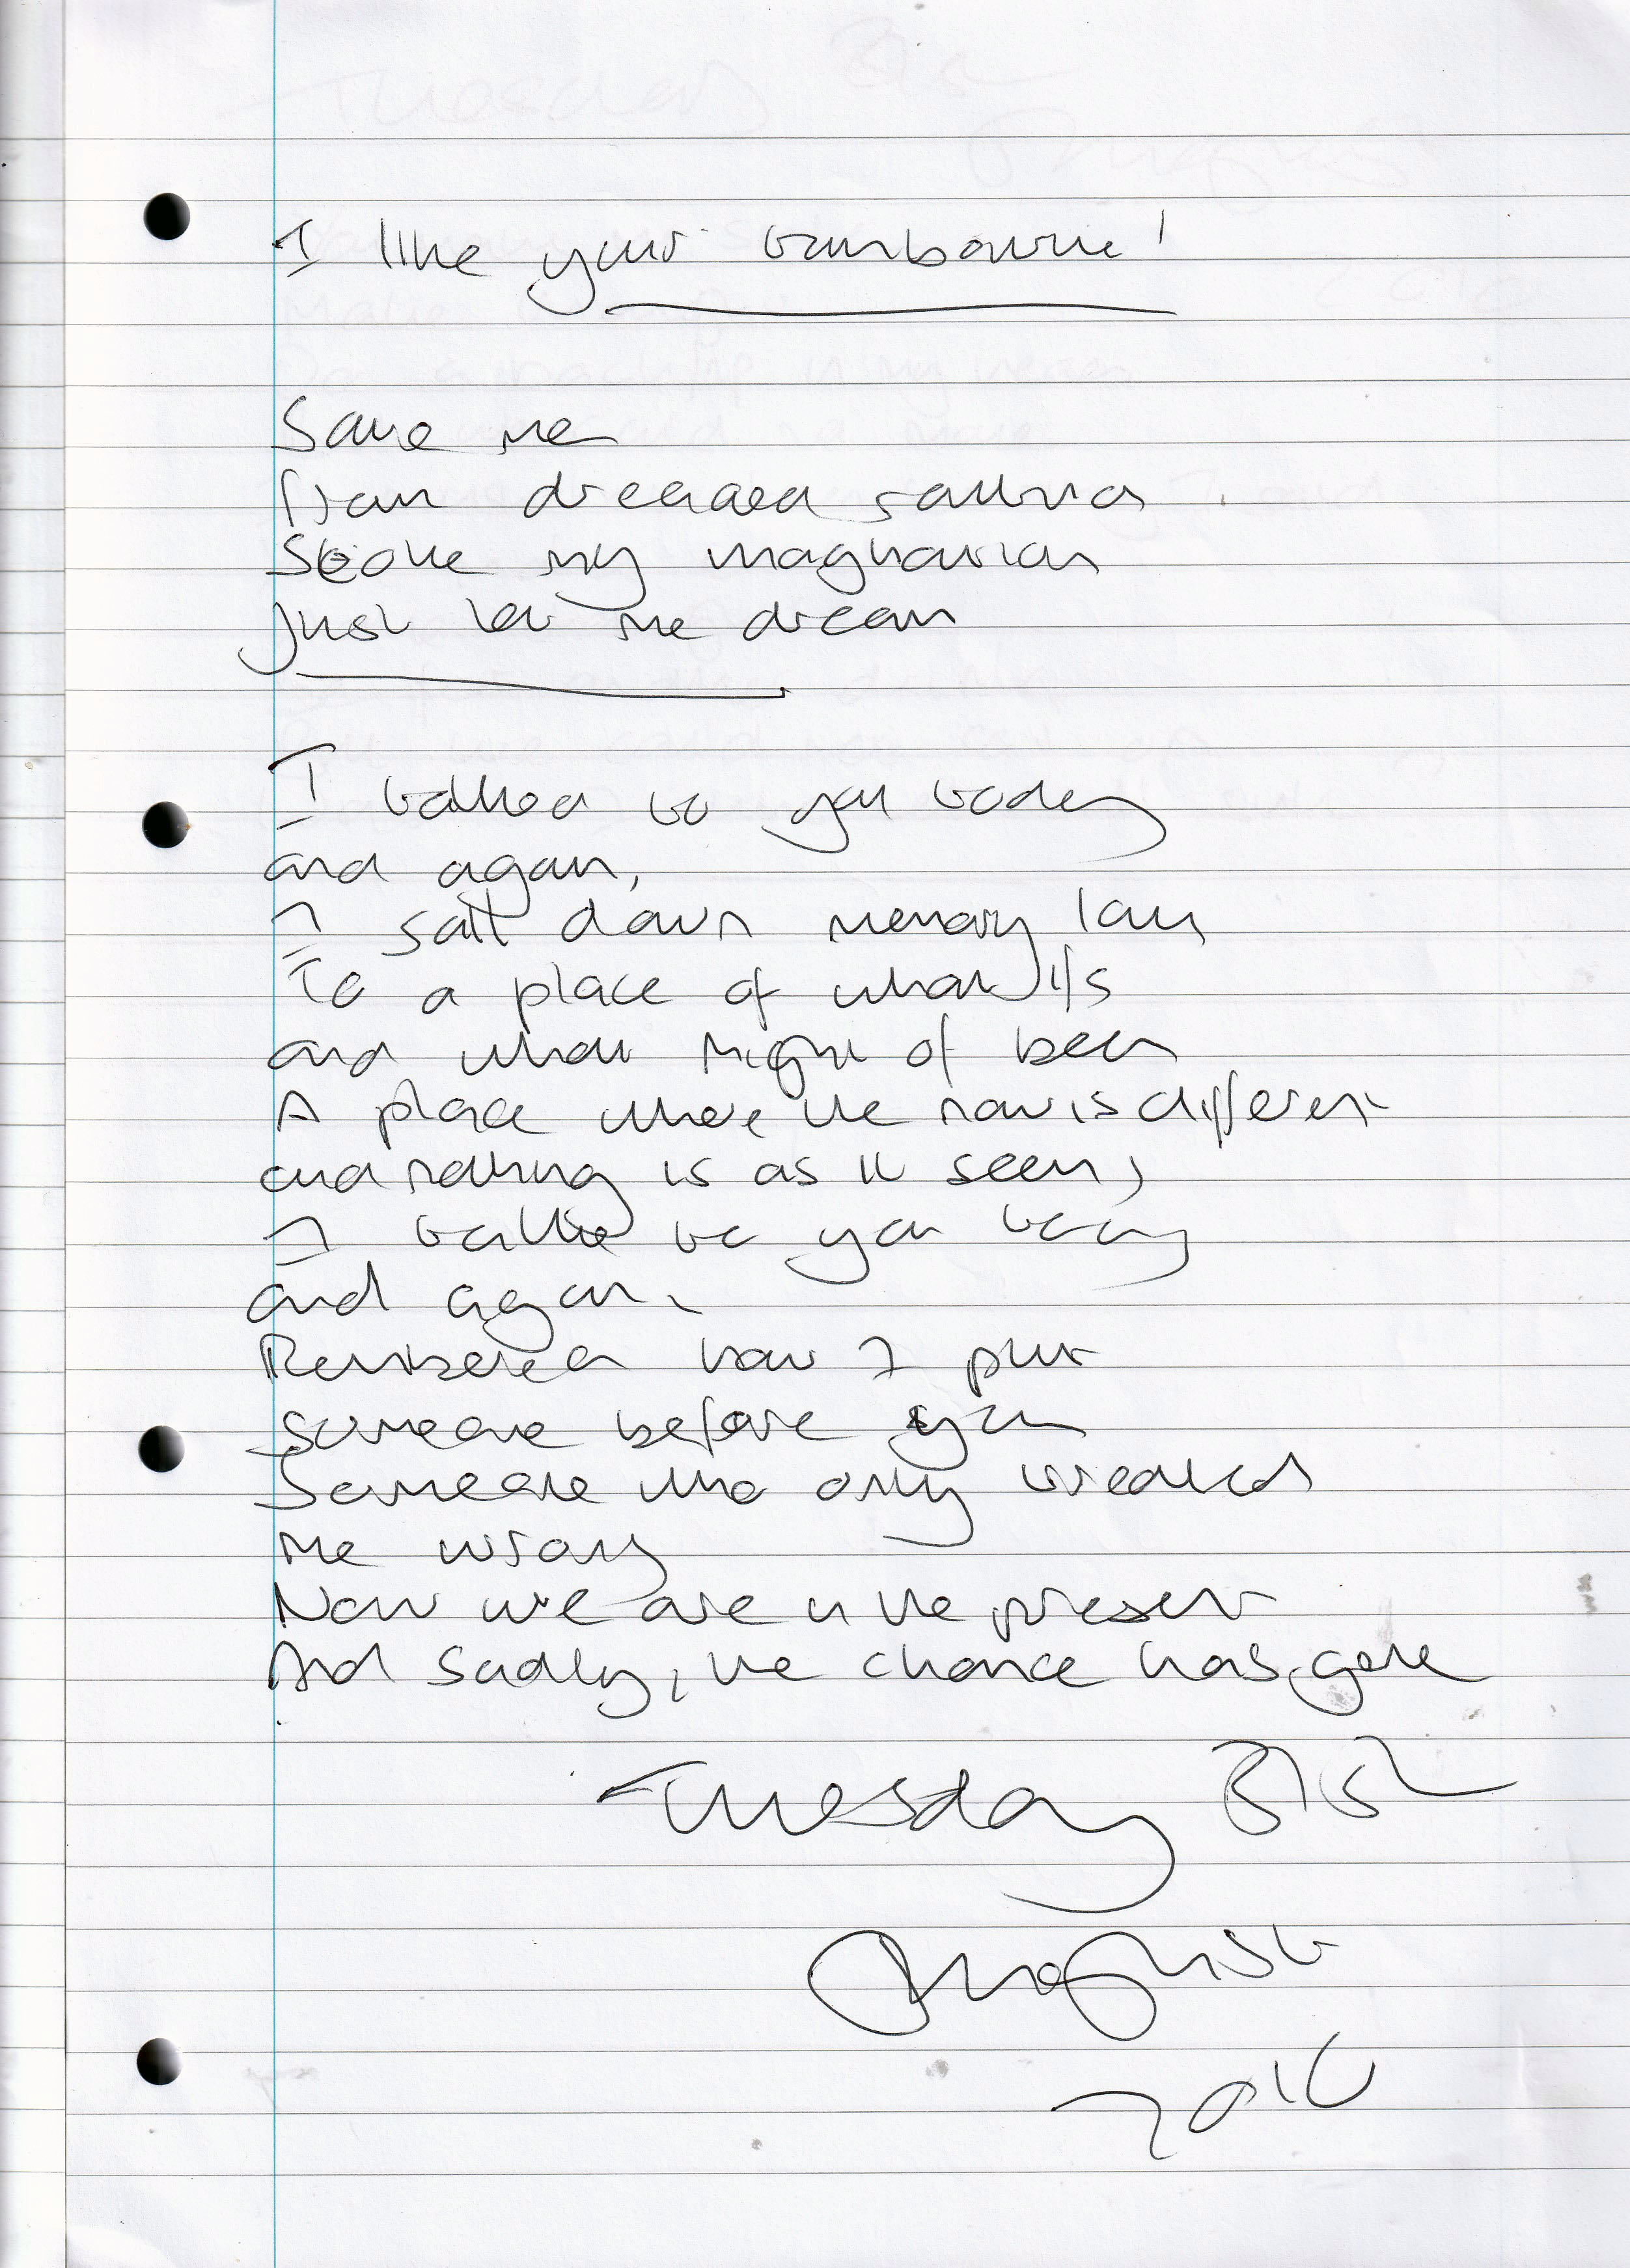 I like your tambourine!
Save me
from dreaded
Stoke my imagination
Just let me dream
I talked to you today
and again,
I sail down memory lane
To a place of what if's
and what might of been
A place where the now is different
and nothing is as it seems,
I talked to you today
and again.
Remembered how I put
someone before you
Someone who only treated
me wrong
Now we are in the present
And sadly, the chance has gone
Tuesday 31st
August
2010